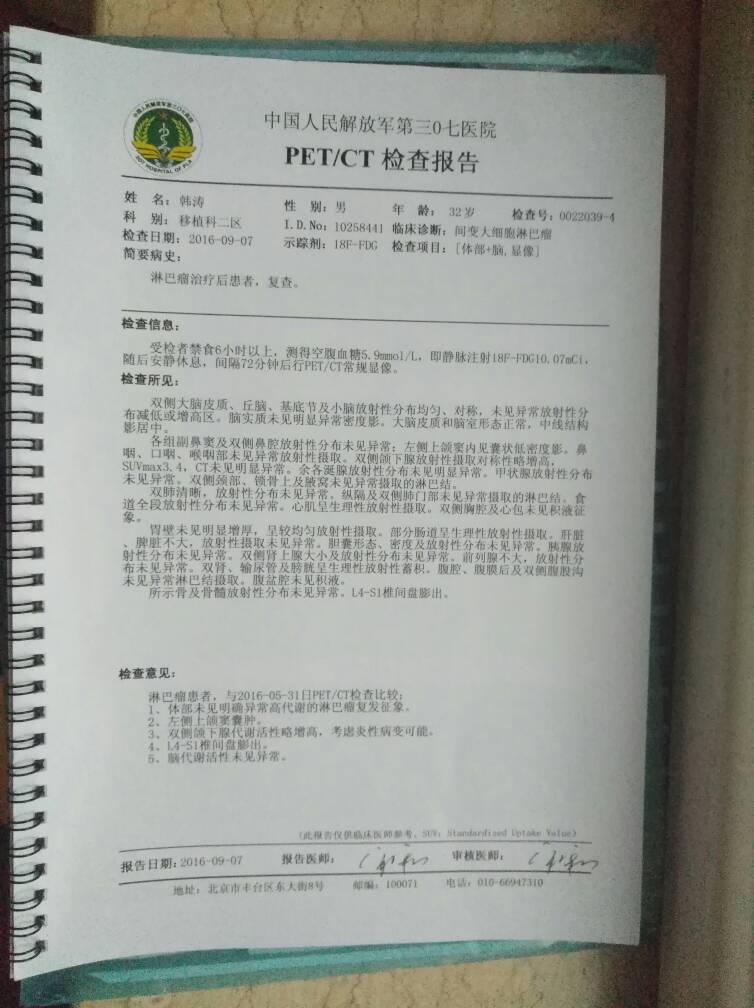 中国人民解放军第三0七医院
307 HOSPITAL OF PLA
PET/CT 检查报告
姓 名：韩涛 性 别：男 年 龄：32岁 检查号：0022039-4
科 别：移植科二区 I.D.No：10258441 临床诊断：间变大细胞淋巴瘤
检查日期：2016-09-07 示踪剂：18F-FDG 检查项目：[体部+脑,显像]
简要病史：
淋巴瘤治疗后患者，复查。
检查信息：
受检者禁食6小时以上，测得空腹血糖5.9mmol/L，即静脉注射18F-FDG10.07mCi，
随后安静休息，间隔72分钟后行PET/CT常规显像。
检查所见：
双侧大脑皮质、丘脑、基底节及小脑放射性分布均匀、对称，未见异常放射性分
布减低或增高区。脑实质未见明显异常密度影。大脑皮质和脑室形态正常，中线结构
影居中。
各组副鼻窦及双侧鼻腔放射性分布未见异常；左侧上颌窦内见囊状低密度影。鼻
咽、口咽、喉咽部未见异常放射性摄取。双侧颌下腺放射性摄取对称性略增高，
SUVmax3.4，CT未见明显异常。余各涎腺放射性分布未见明显异常。甲状腺放射性分布
未见异常。双侧颈部、锁骨上及腋窝未见异常摄取的淋巴结。
双肺清晰，放射性分布未见异常。纵隔及双侧肺门部未见异常摄取的淋巴结。食
道全段放射性分布未见异常。心肌呈生理性放射性摄取。双侧胸腔及心包未见积液征
象。
胃壁未见明显增厚，呈较均匀放射性摄取。部分肠道呈生理性放射性摄取。肝脏
、脾脏不大，放射性摄取未见异常。胆囊形态、密度及放射性分布未见异常。胰腺放
射性分布未见异常。双侧肾上腺大小及放射性分布未见异常。前列腺不大，放射性分
布未见异常。双肾、输尿管及膀胱呈生理性放射性蓄积。腹腔、腹膜后及双侧腹股沟
未见异常淋巴结摄取。腹盆腔未见积液。
所示骨及骨髓放射性分布未见异常。L4-S1椎间盘膨出。
检查意见：
淋巴瘤患者，与2016-05-31日PET/CT检查比较：
1、体部未见明确异常高代谢的淋巴瘤复发征象。
2、左侧上颌窦囊肿。
3、双侧颌下腺代谢活性略增高，考虑炎性病变可能。
4、L4-S1椎间盘膨出。
5、脑代谢活性未见异常。
(此报告仅供临床医师参考，SUV：Standardized Uptake Value)
报告日期：2016-09-07 报告医师： 审核医师：
地址：北京市丰台区东大街8号 邮编：100071 电话：010-66947310